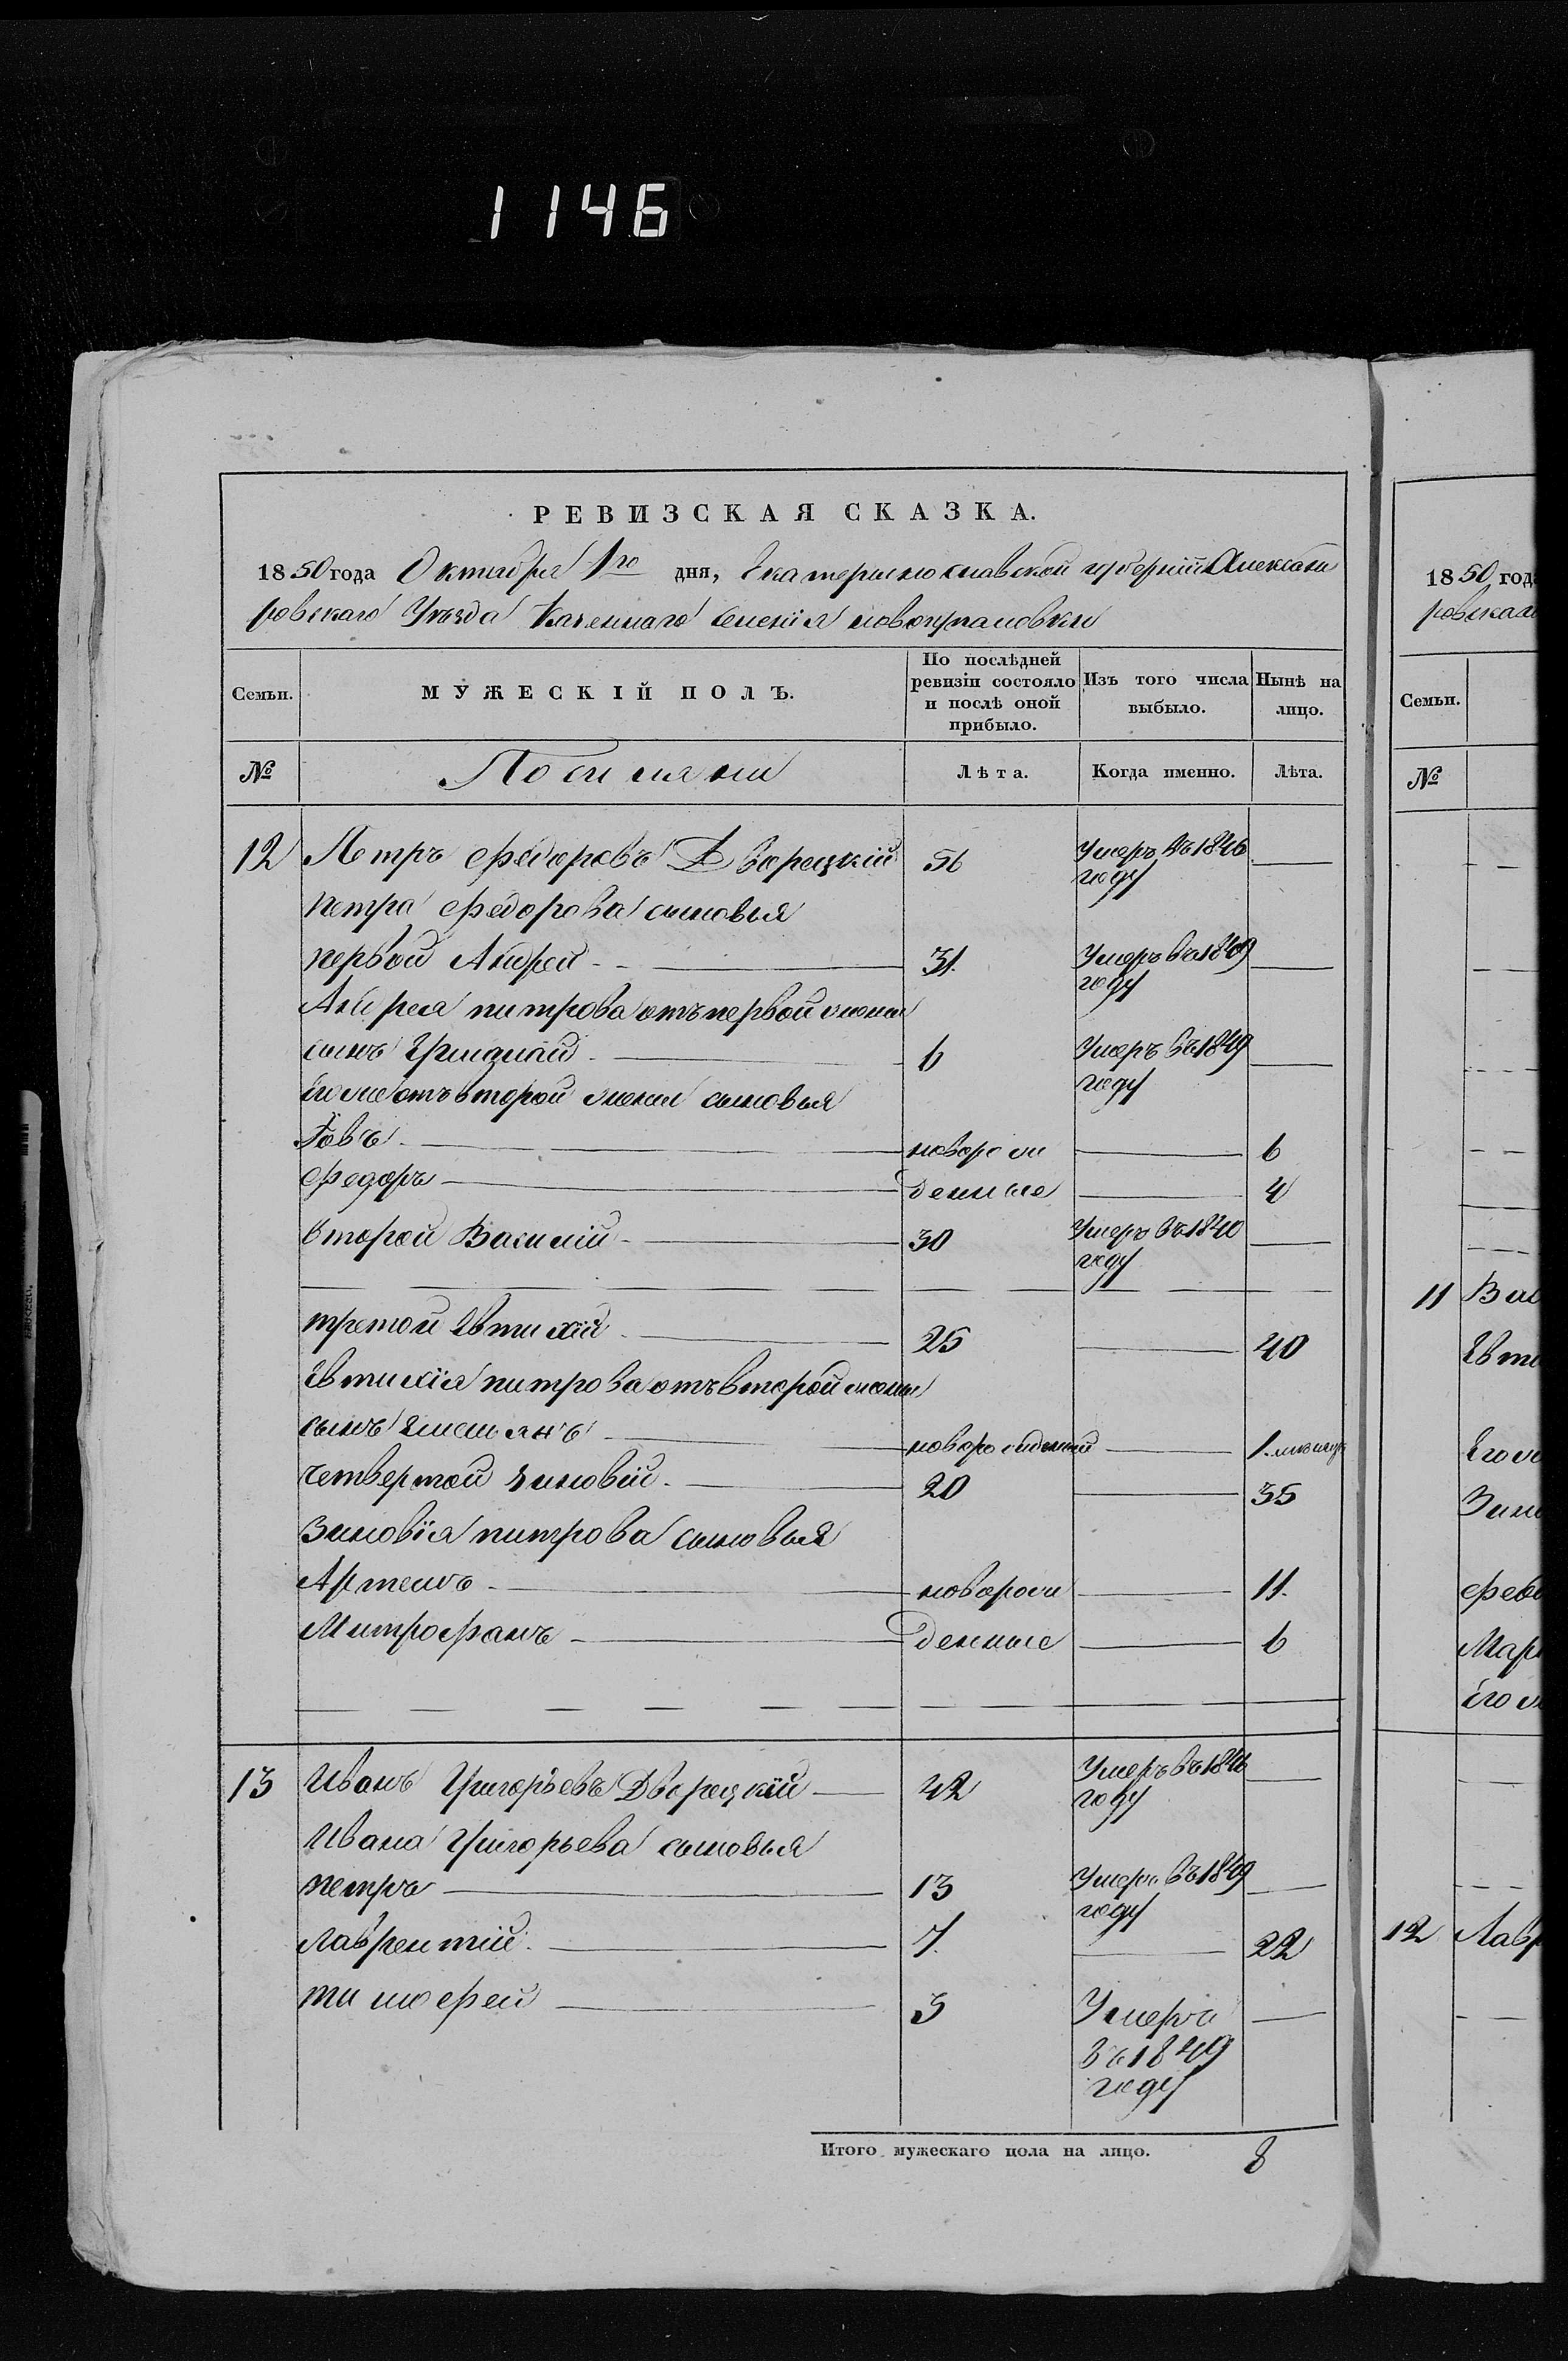 1146
РЕВИЗСКАЯ СКАЗКА.
1850 года Октября 1го дня, Екатеринославской губерніи Алексан
ровскаго Уѣзда Казеннаго селенія
Семьи.
МУЖЕСКІЙ ПОЛЪ.
По послѣдней ревизіи состояло и послѣ оной прибыло.
Изъ того числа выбыло.
Нынѣ на лицо.
№
Лѣта.
Когда именно.
Лѣта.
12 Петръ Федоровъ Дворецкій 56 Умеръ въ 1846 году
Петра Федорова сыновья
первой Андрей 31. Умеръ въ 1849 году
Андрея питрова отъ первой жены
сынъ 6 Умеръ въ 1849 году
его же отъ второй жены сыновья
Іовъ новорож 6
Федоръ денные 4
второй Василій 30 Умеръ въ 1840 году
третой Евтихій 25 40
Евтихія питрова отъ второй жены
сынъ Емельянъ новорожденный 1. месяцъ
четвертой Зиновій 20 35
Зиновія питрова сыновья
Артемъ новорож 11.
Митрофанъ денные 6
13 Иванъ Григорьевъ Дворецкій 42 Умеръ въ 1846 году
Ивана Григорьева сыновья
петръ 13 Умеръ въ 1849 году
лаврентій 7. 22
тимофей 3 Умеръ
въ 1849
году
Итого мужескаго пола на лицо. 8
1850 год
ровскаго
Семьи.
№
11 Вас
Евти
Его ж
Зино
федо
Мари
его ж
12 Лавр